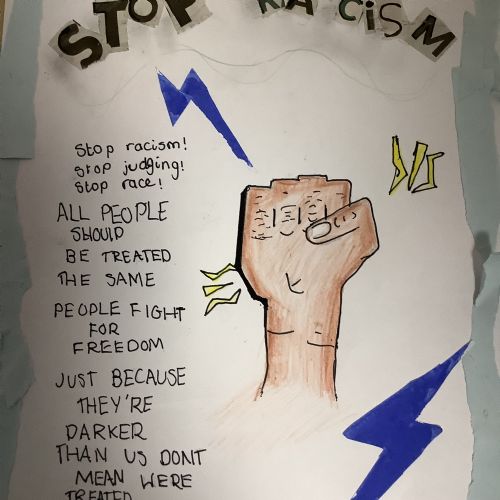 STOP RACISM
Stop racism!
stop judging!
Stop race!
ALL PEOPLE
SHOULD
BE TREATED
THE SAME
PEOPLE FIGHT
FOR
FREEDOM
JUST BECAUSE
THEY'RE
DARKER
THAN US DONT
MEAN WERE
TREATED